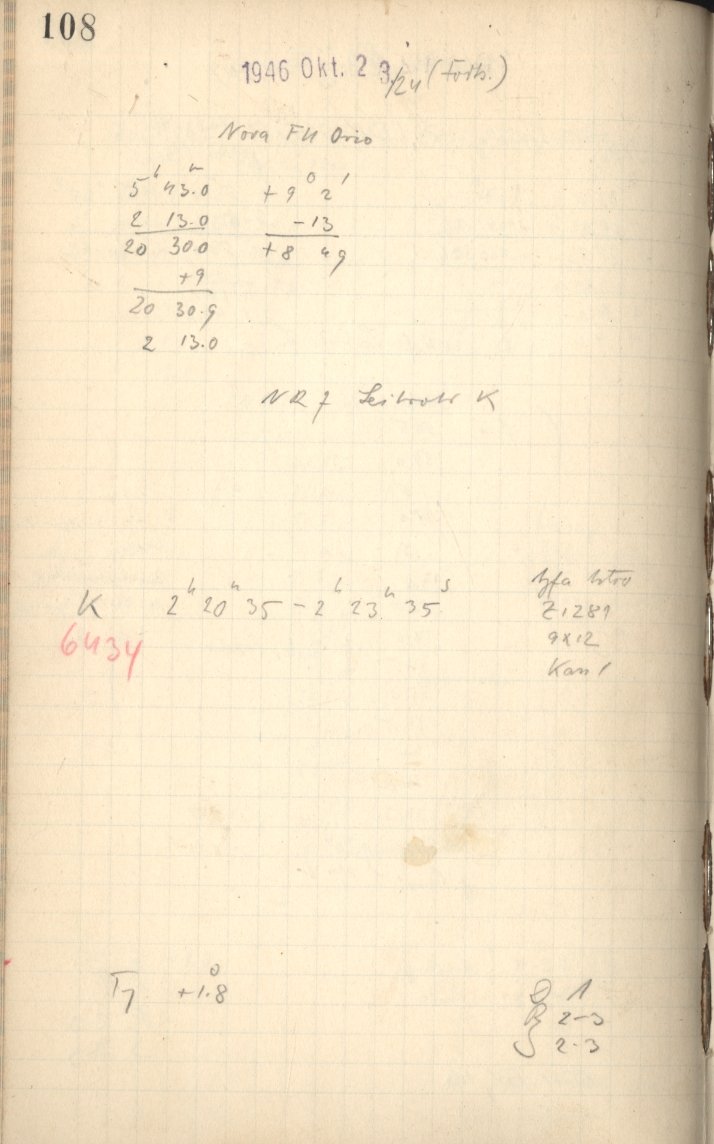 108
1946 Okt. 2 3/24 (Forts.)
Nova FU Orio
5ʰ 43ᵐ.0 +9° 2'
2 13.0 -13
20 30.0 +8 49
+9
20 30.9
2 13.0
NR 7 Leitrohr K
K 2ʰ 20ᵐ 35 - 2ʰ 23ᵐ 35ˢ
6434
Agfa
Z 1281
9x12
Kass 1
+1.8°
1
2-3
2-3